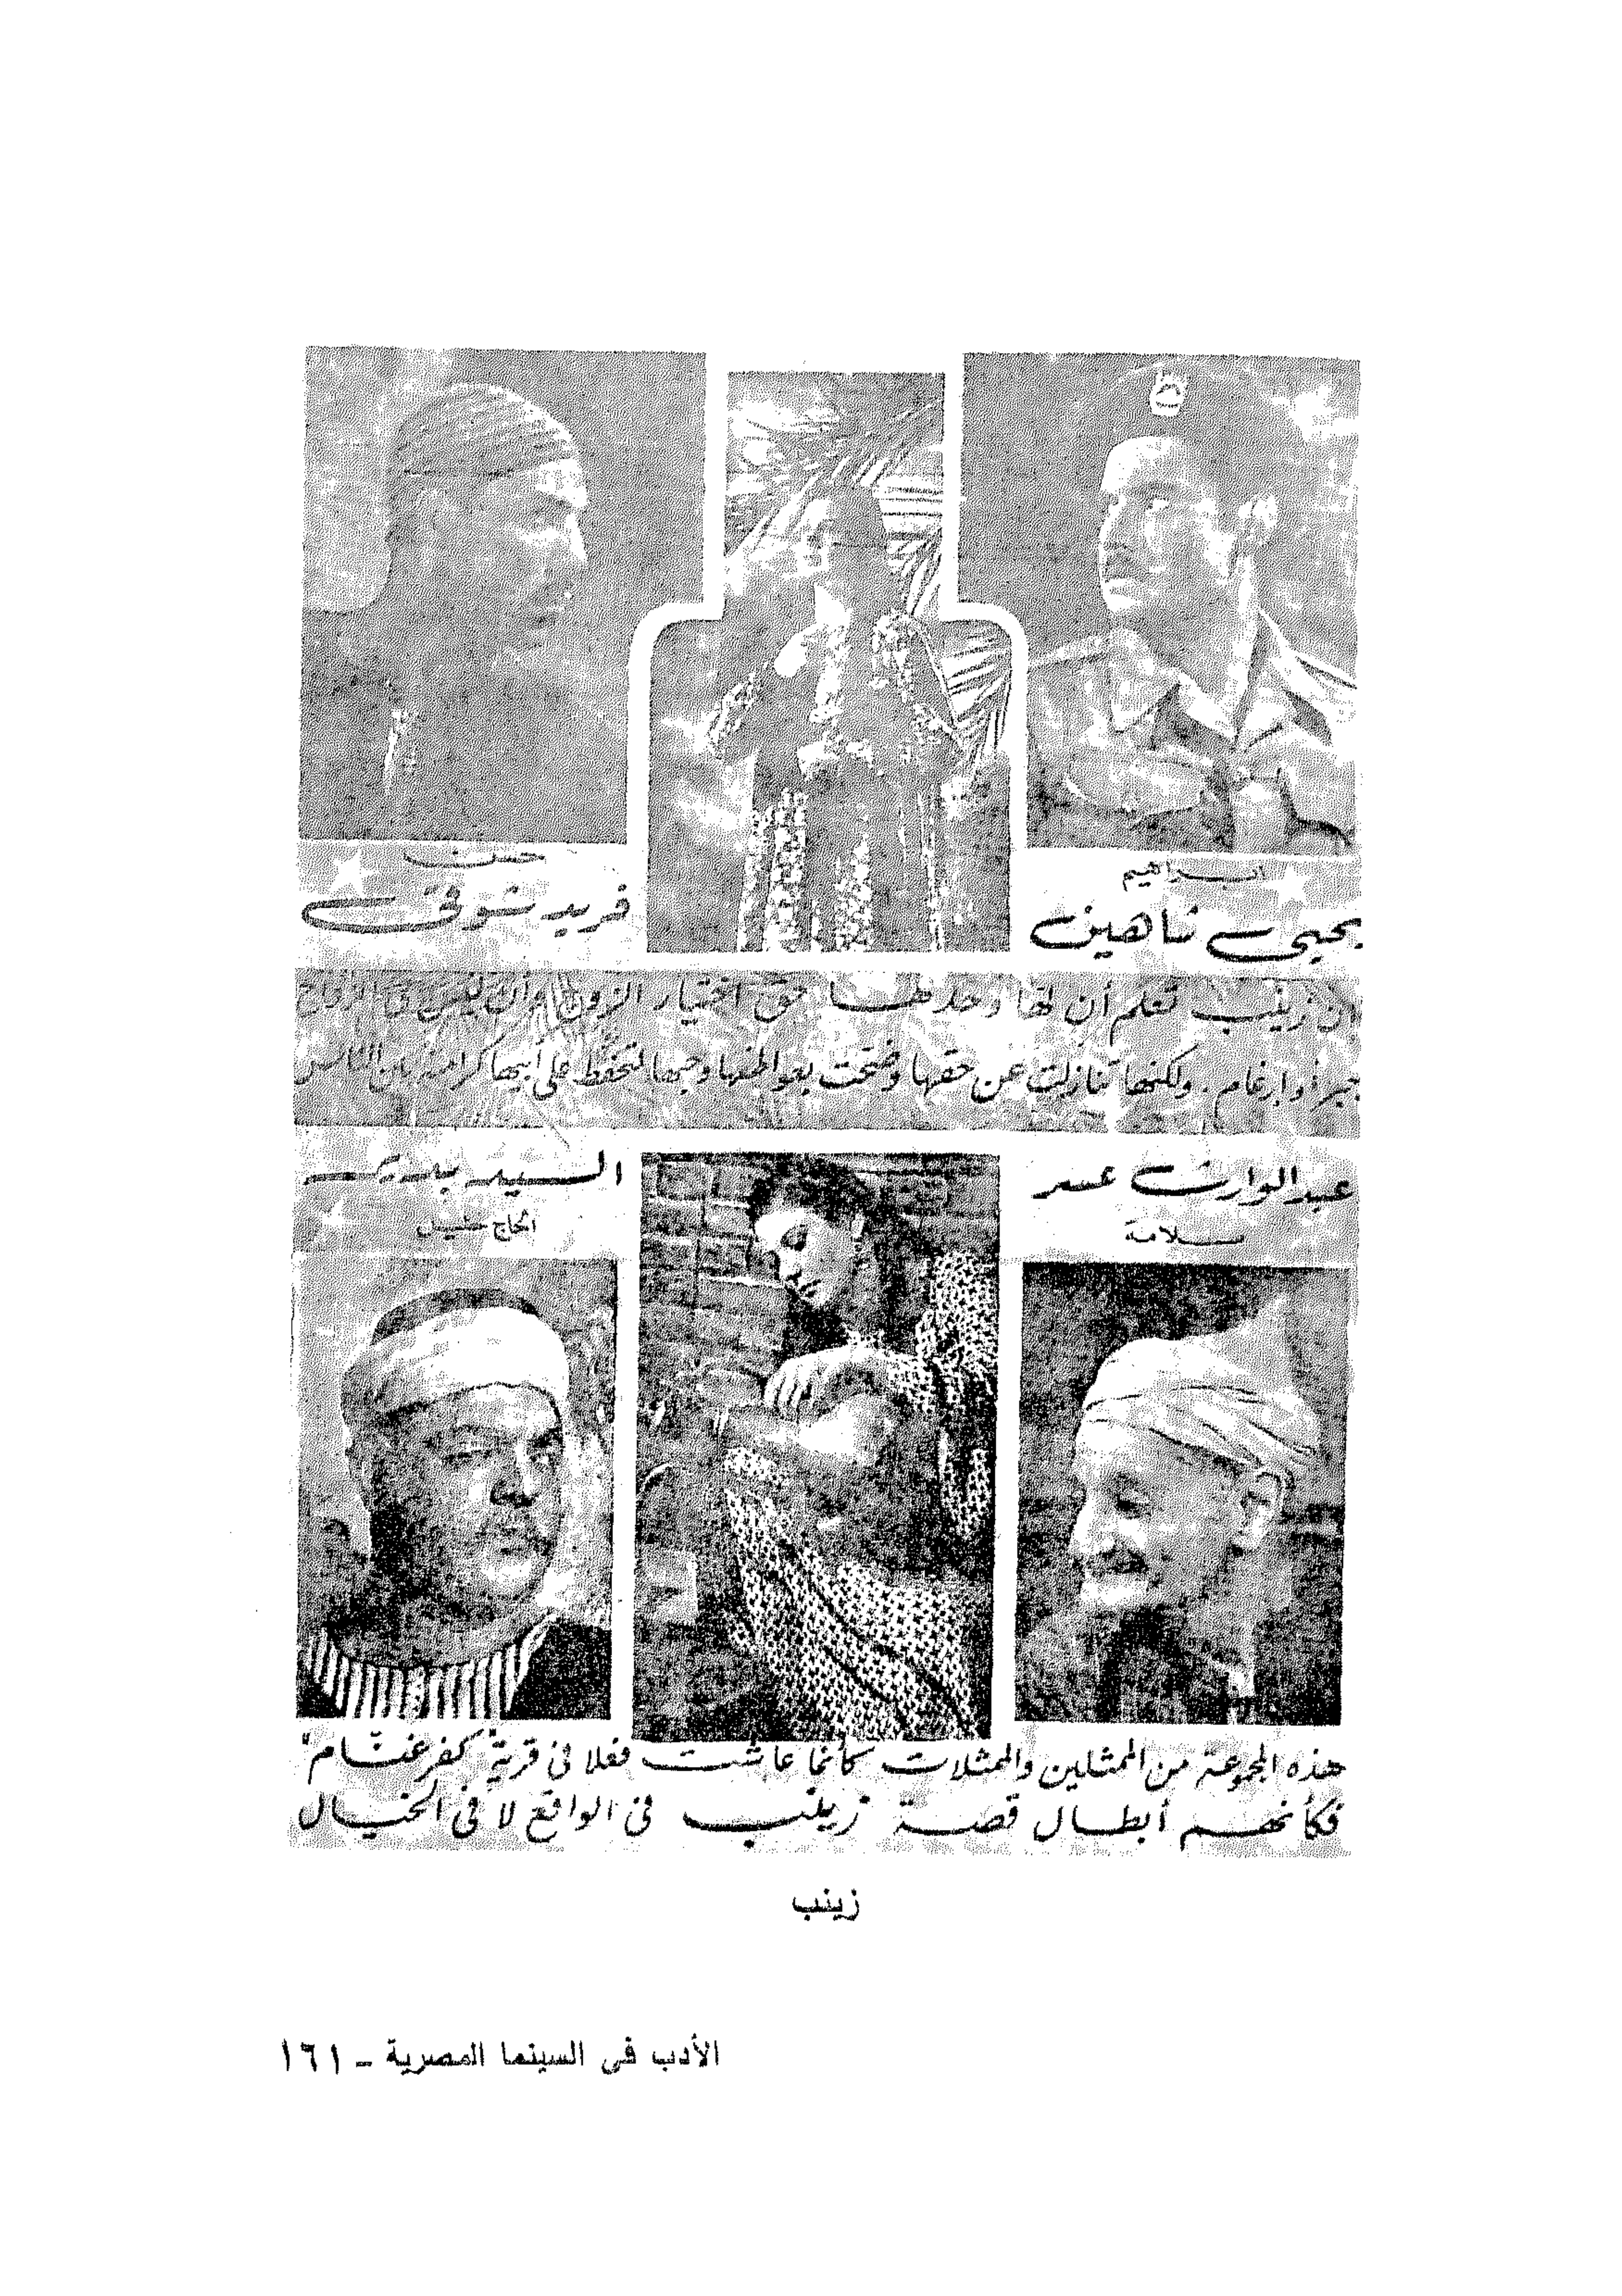 ابراهيم
يحيى شاهين
حسن
فريد شوقى
ان زينب تعلم أن لها وحدها حق اختيار الزوج وأن ليس فى الزواج
جبر أو إرغام. ولكنها تنازلت عن حقها وضحت بعواطفها وحبها لتحفظ على أبيها كرامته بين الناس
عبد الوارث عسر
سلامة
السيد بدير
الحاج خليل
هذه المجموعة من الممثلين والممثلات كأنما عاشت فعلا فى قرية "كفر غنام"
فكأنهم أبطال قصة زينب فى الواقع لا فى الخيال
زينب
الأدب فى السينما المصرية ـ ١٦١